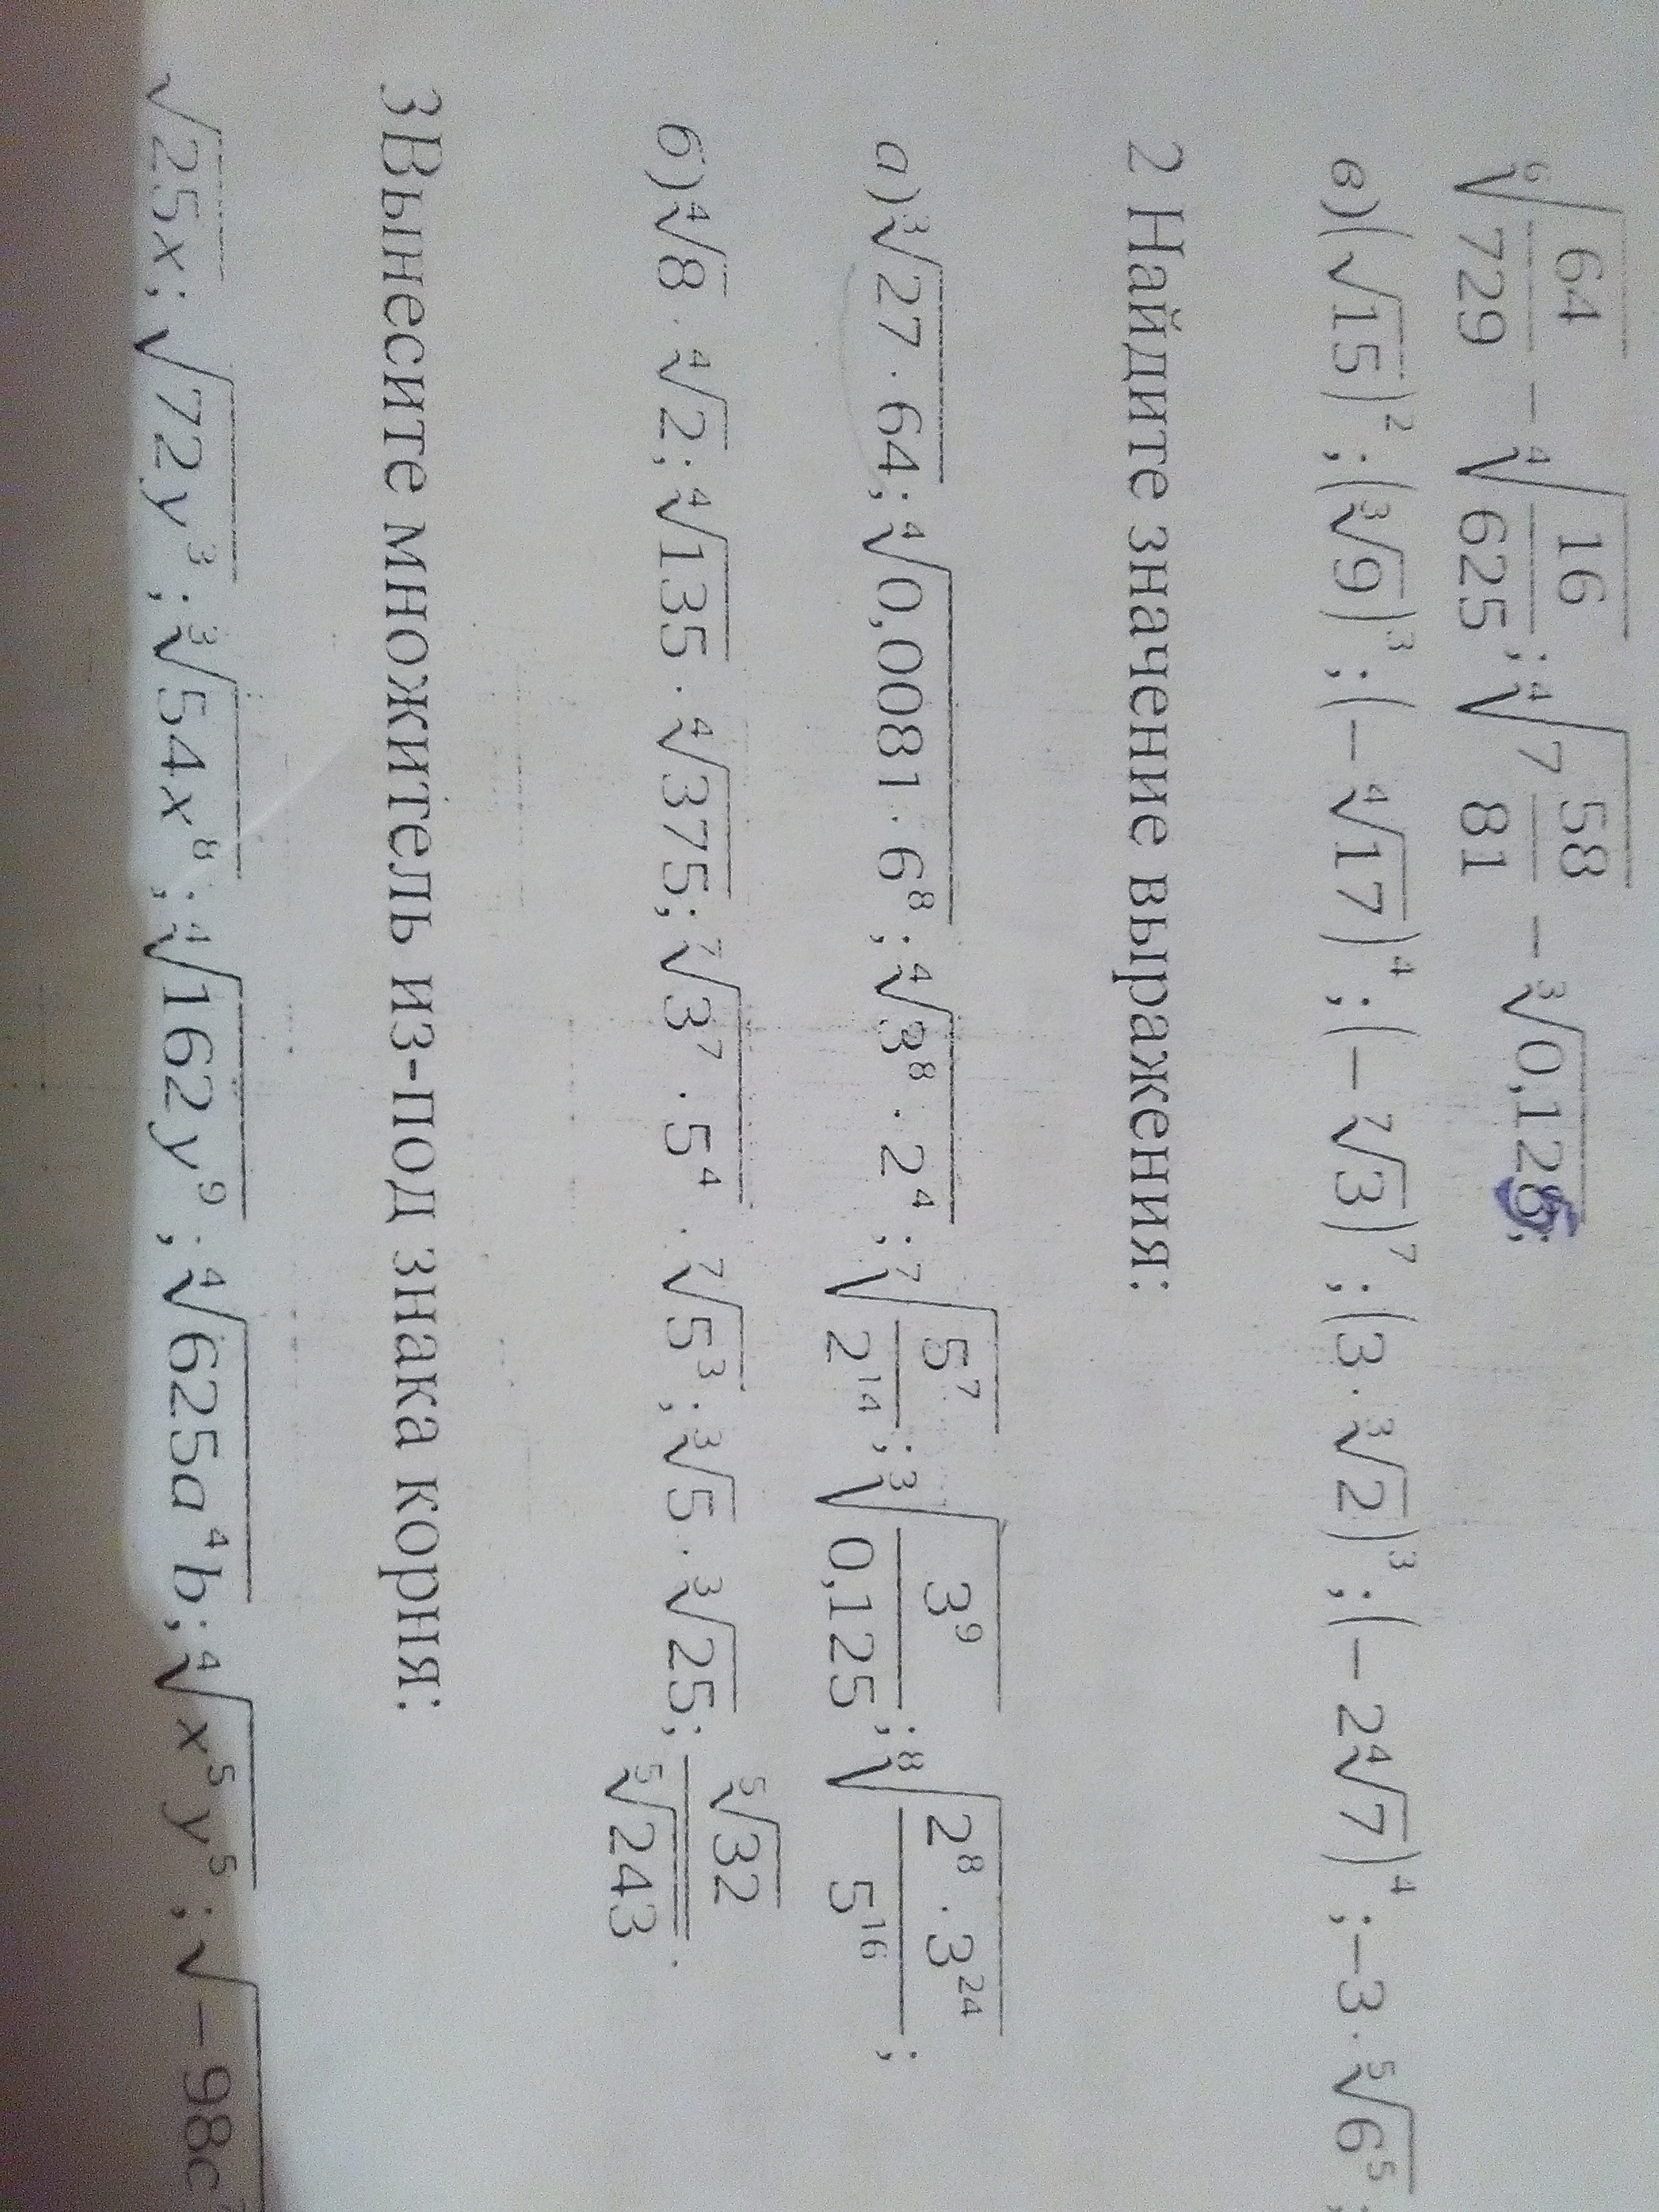 ⁶√(64/729) − ⁴√(16/625); ⁴√(7 58/81) − ³√0,125;
в)(√15)²; (³√9)³; (−⁴√17)⁴; (−⁷√3)⁷; (3·³√2)³; (−2⁴√7)⁴; −3·⁵√6⁵;
2 Найдите значение выражения:
а)³√(27·64); ⁴√(0,0081·6⁸); ⁴√(3⁸·2⁴); ⁷√(5⁷/2¹⁴); ³√(3⁹/0,125); ⁸√(2⁸·3²⁴/5¹⁶);
б)⁴√8·⁴√2; ⁴√135·⁴√375; ⁷√(3⁷·5⁴)·⁷√5³; ³√5·³√25; ⁵√32/⁵√243.
3Вынесите множитель из-под знака корня:
√25x; √72y³; ³√54x⁸; ⁴√162y⁹; ⁴√625a⁴b; ⁴√x⁵y⁵; √−98c⁷